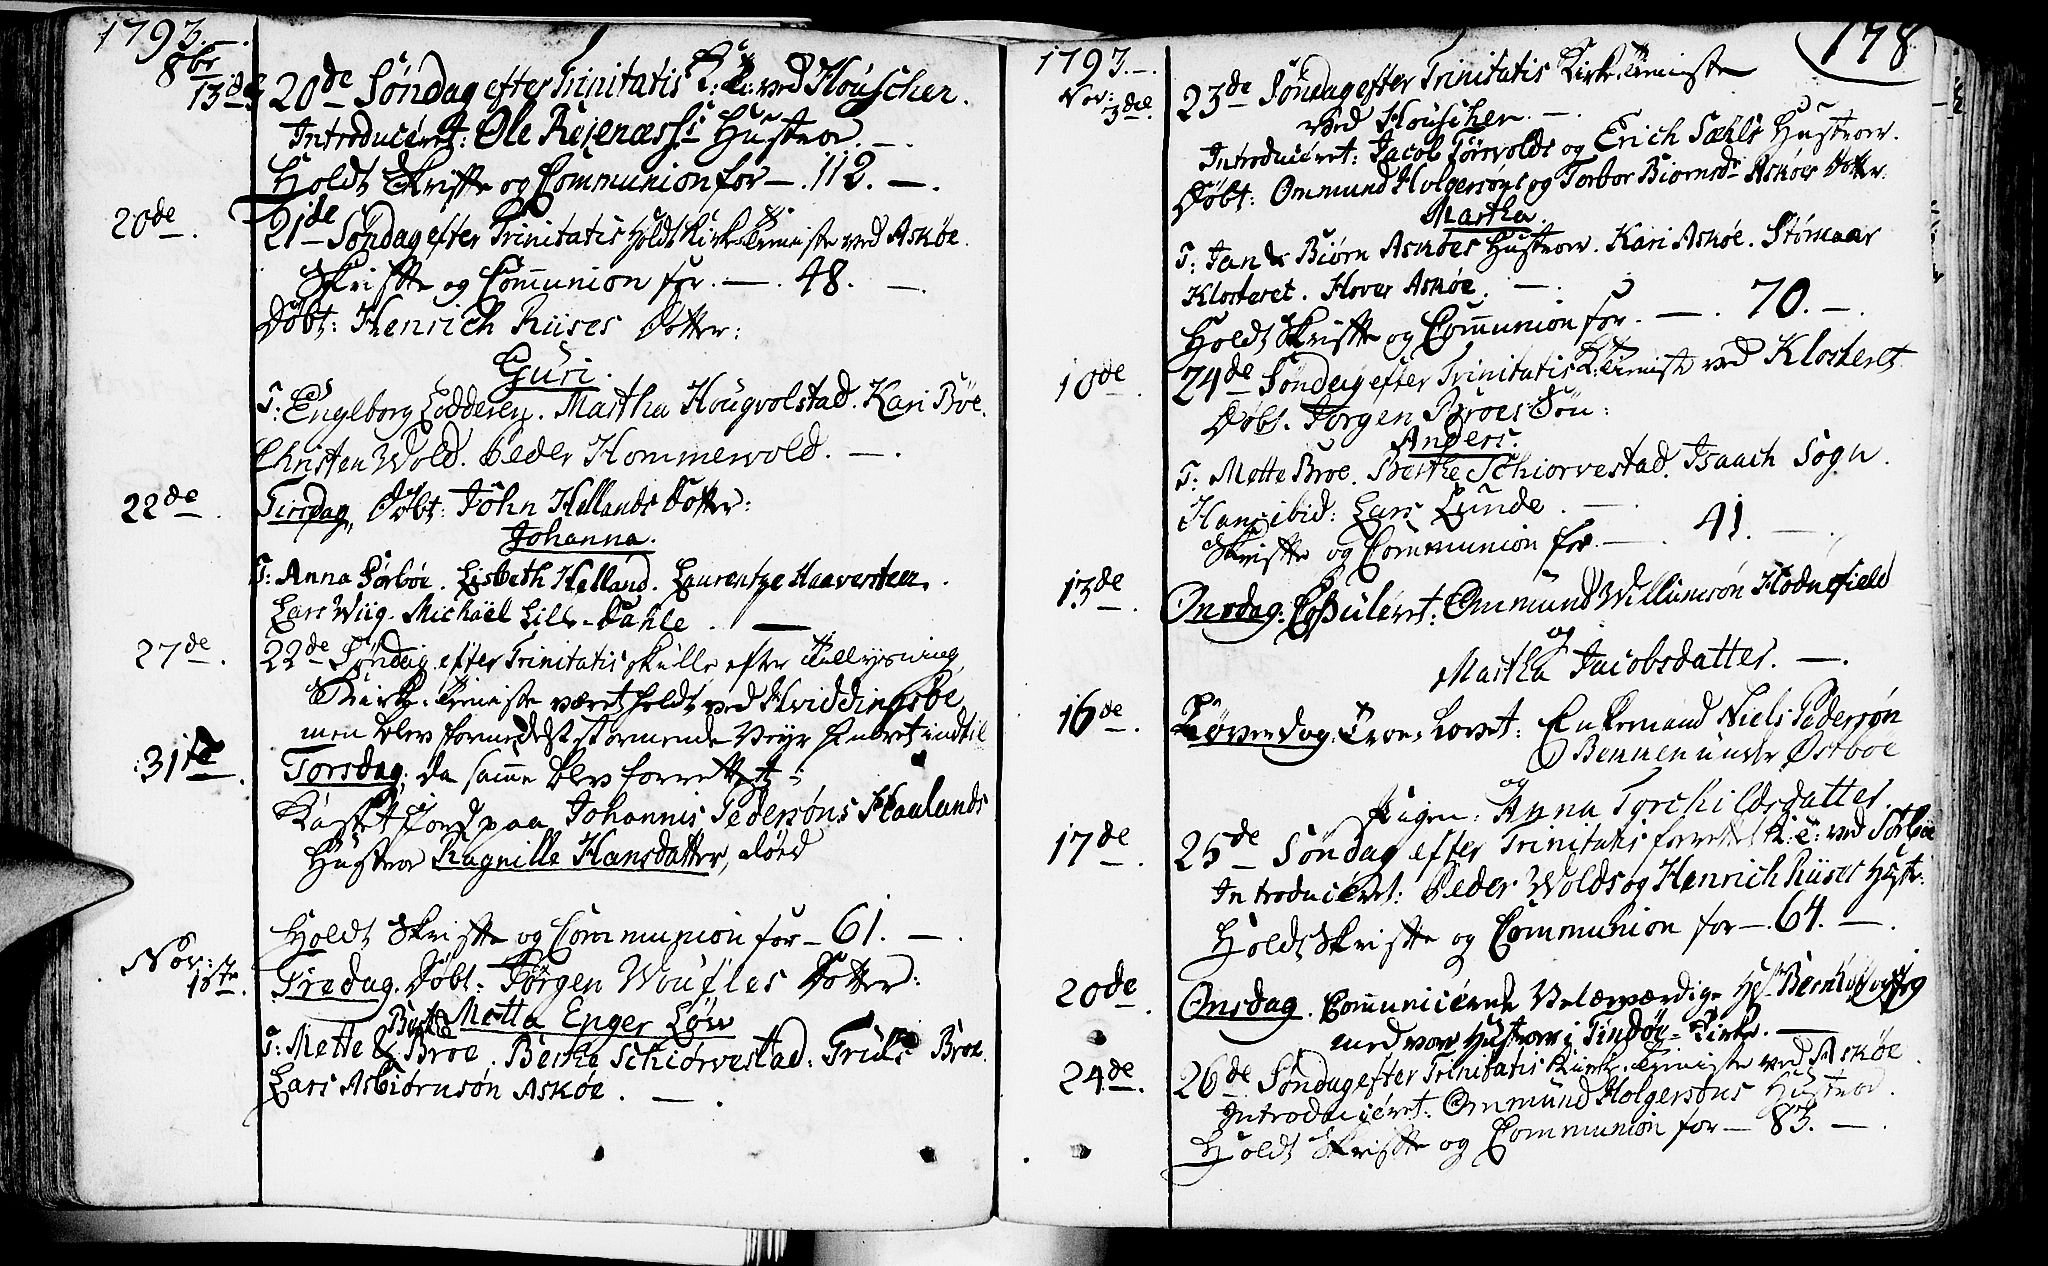 1793.—.
8br
13de 20de Søndag efter Trinitatis K: T: ved Houschen.
Introduceret: Ole Reienæss's Hustroe. —.
Holdt Skrifte og Communion for —. 112. —.
20de. 21de Søndag efter Trinitatis Holdt Kirke-Tieniste ved Askøe.
Skrifte og Communion for. —. 48. —
Døbt: Henrich Riises Dotter:
Guri.
T: Engleborg Lodderen. Martha Hougvolstad. Kari Bøe.
Christen Wold. Peder Hommervold. —.
22de. Tirsdag, Døbt: John Hellands Dotter:
Johanna.
T: Anna Sørbøe. Lisbeth Helland. Laurentze Haaversteen.
Lars Wiig. Michaël Lille-Dahle. —
27de. 22de Søndag efter Trinitatis skulle efter Tillysning
Kirke-Tieniste været holdt ved Hviddingsøe
men blev formedelst stormende Veyr hindret indtil
31te. Torsdag, da samme blev forrettet:
Kastet Jord paa Johannis Pedersøns Haalands
Hustroe Ragnille Hansdatter, død
Holdt Skrifte og Communion for — 61. —.
Nov:
1ste. Fredag. Døbt: Jørgen Woufles Dotter:
Mætta Enger Løw
T: Mette Broe. Berthe Schiørvestad. Truls Broe.
Lars Asbiørnsøn Askøe. —.
178
1793.—.
Nov:
3die. 23de Søndag efter Trinitatis Kirke-Tieniste
ved Houschen. —.
Introduceret: Jacob Førsvolds og Erich Sæhls Hustroer.
Døbt: Ommund Holgersøns og Torbor Biørnsdr Askøes Dotter:
Martha.
T: Jan & Biørn Askøes Hustroer. Kari Askøe. Størkaar
Klosteret. Hover Askøe. —.
Holdt Skrifte og Communion for. —. 70. —.
10de. 24de Søndag efter Trinitatis K: Tieniste ved Klosteret
Døbt. Jørgen Broes Søn:
Anders.
T: Mette Broe. Berthe Schiørvestad. Isaach Sogn.
Hans ibid: Lars Lunde. —.
Skrifte og Communion for. —. 41. —.
13de. Onsdag: Copuleret: Ommund Willumsøn Hodnefield
og
Martha Jacobsdatter. —.
16de. Løverdag: Trolovet: Enkemand Niels Pedersøn
Bennen under Østbøe
og
Pigen: Anna Torchildsdatter.
17de. 25de Søndag efter Trinitatis forrettet K: T: ved Sørbøe
Introduceret: Peder Wolds og Henrich Riises Hustr:
Holdt Skrifte og Communion for —. 64. —.
20de. Onsdag. Communicerede Velærværdige Hr
med vor Hustroe i Findøe-Kirke. —
24de. 26de Søndag efter Trinitatis Kirke-Tieniste ved Askøe.
Introduceret: Ommund Holgersøns Hustroe.
Holdt Skrifte og Communion for — 83. —.